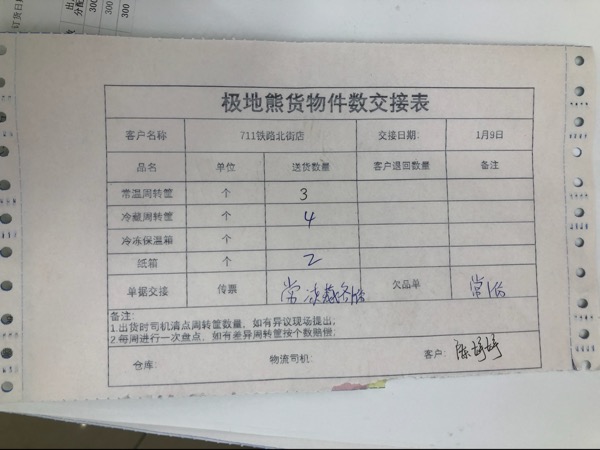 订货日
出
分配
300
300
300
极地熊货物件数交接表
客户名称 711铁路北街店 交接日期: 1月9日
品名 单位 送货数量 客户退回数量 备注
常温周转筐 个 3
冷藏周转筐 个 4
冷冻保温箱 个
纸箱 个 2
单据交接 传票 常 欠品单 常
备注:
1.出货时司机清点周转筐数量，如有异议现场提出;
2.每周进行一次盘点，如有差异周转筐按个数赔偿;
仓库: 物流司机: 客户: 陈婷婷